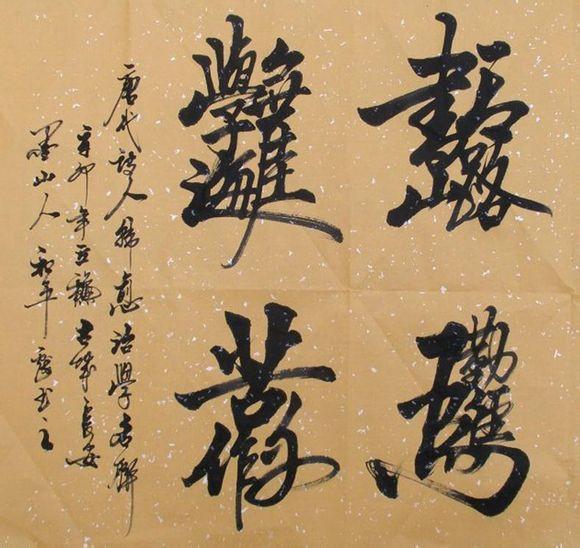 書山有路
勤為徑
學海無涯
苦作舟
唐代詩人韩愈治學名聯
辛卯年古城長安
墨山人和平书之